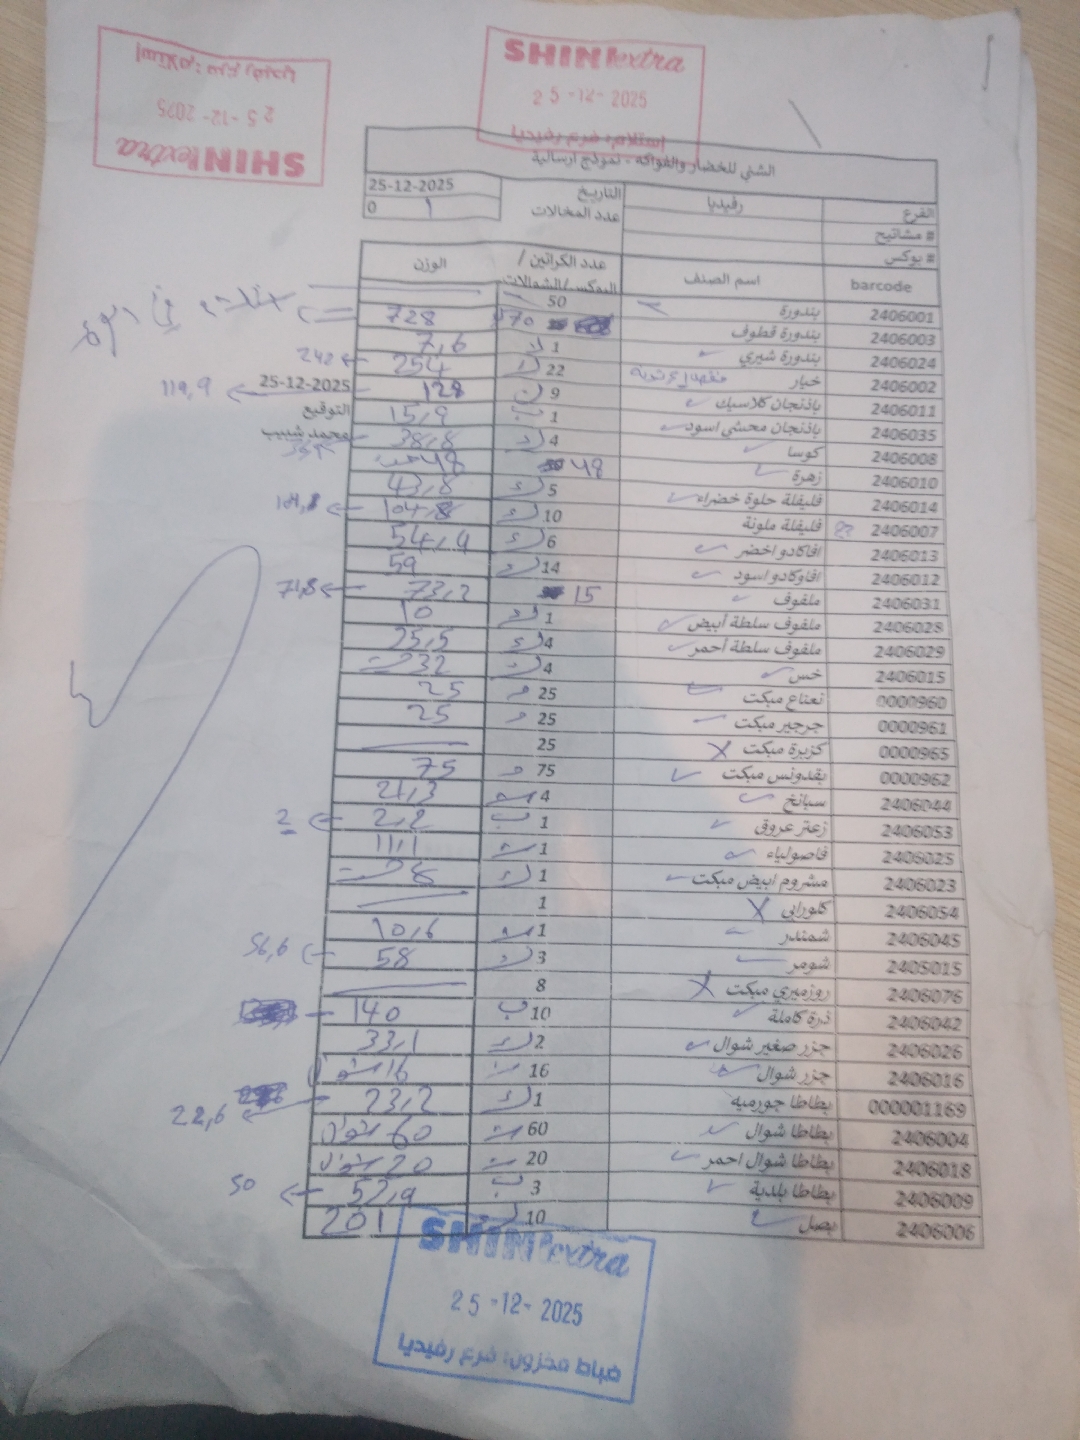 SHINIextra
25-12-2025
استلام: فرع رفيديا
SHINIextra
25-12-2025
استلام: فرع رفيديا
الشني للخضار والفواكه - نموذج ارسالية
الفرع رفيديا التاريخ 25-12-2025
# مشاتيح عدد المخالات 0 1
# بوكس
barcode اسم الصنف عدد الكراتين / البوكس/الشوالات الوزن
2406001 بندورة 50
2406003 بندورة قطوف 70 728
2406024 بندورة شيري 1 7,6
2406002 خيار 22 254 242
2406011 باذنجان كلاسيك 9 128 25-12-2025 119,9
2406035 باذنجان محشي اسود 1 15,9 التوقيع
2406008 كوسا 4 38,8 محمد شبيب
2406010 زهرة 48 48
2406014 فليفلة حلوة خضراء 5 43,8
2406007 فليفلة ملونة 10 104,8
2406013 افاكادو اخضر 6 54,4
2406012 افاوكادو اسود 14 59
2406031 ملفوف 15 73,2 71,8
2406028 ملفوف سلطة أبيض 1 10
2406029 ملفوف سلطة أحمر 4 25,5
2406015 خس 4 32
0000960 نعناع مبكت 25 25
0000961 جرجير مبكت 25 25
0000965 كزبرة مبكت 25
0000962 بقدونس مبكت 75 75
2406044 سبانخ 4 21,3
2406053 زعتر عروق 1 2,2 2
2406025 فاصولياء 1 11,1
2406023 مشروم ابيض مبكت 1 8
2406054 كلورابي 1
2406045 شمندر 1 10,6
2405015 شومر 3 58 56,6
2406076 روزميري مبكت 8
2406042 ذرة كاملة 10 140
2406026 جزر صغير شوال 2 33,1
2406016 جزر شوال 16 16 شوال
000001169 بطاطا جورميه 1 23,2 22,6
2406004 بطاطا شوال 60 60 شوال
2406018 بطاطا شوال احمر 20 20 شوال
2406009 بطاطا بلدية 3 52,9 50
2406006 بصل 10 201
SHINIextra
25-12-2025
ضباط مخزون: فرع رفيديا